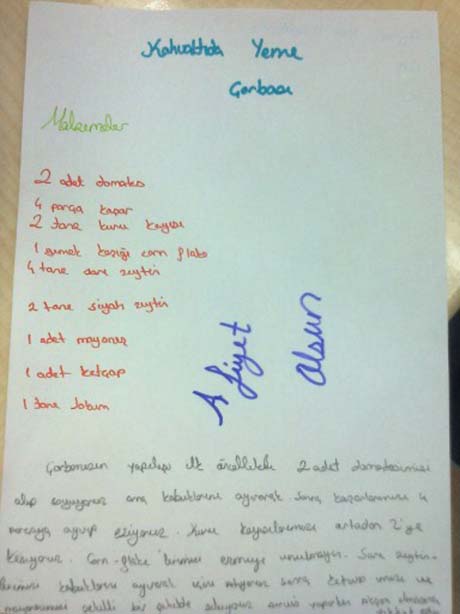 Kahvaltıda Yeme
Çorbası
Malzemeler
2 adet domates
4 parça kaşar
2 tane kuru kayısı
1 yemek kaşığı corn flake
4 tane sarı zeytin
2 tane siyah zeytin
1 adet mayonez
1 adet ketçap
1 tane lokum
Afiyet
olsun
Çorbamızın yapılışı ilk öncelikle 2 adet domatesimizi
alıp soyuyoruz ama kabuklarını ayırarak. Sonra kaşarlarımızı 4
parçaya ayırıp eziyoruz. Kuru kayısılarımızı ortadan 2'ye
kesiyoruz. Corn-flake 'lerimizi ezmeyi unutmayın. Sarı zeytin-
lerimizi kabuklarını ayırarak içini atıyoruz sonra
bir şekilde